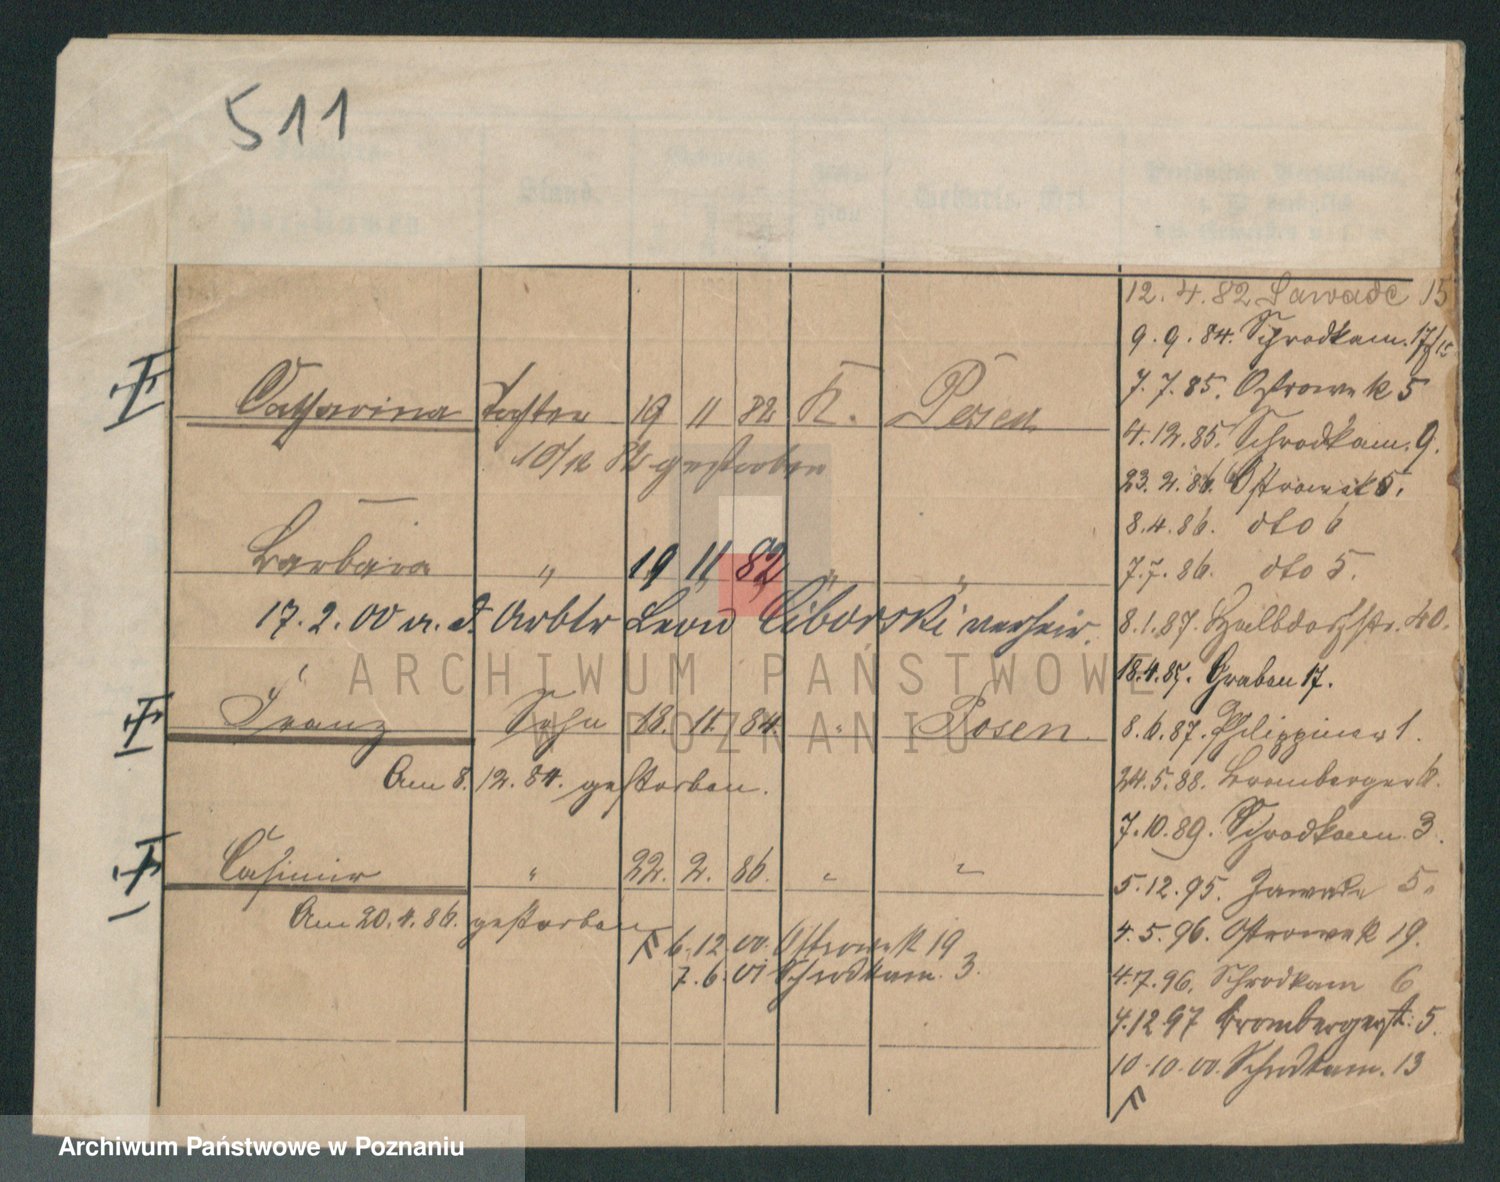 511
12. 4. 82 Zawade 15
9. 9. 84. Schrodkam. 17/18
Catharina Tochter 19 11 82 K. Posen
7. 7. 85. Ostrowek 5
10/12 82 gestorben
4. 12. 85. Schrodkam. 9.
23. 2. 86. Ostrowek 5.
8. 4. 86. dto 6
Barbara " 19 11 82 " "
7. 7. 86. dto 5.
17. 2. 00 m. d. Arbtr Leon Ciborski verheir.
8. 1. 87. Halbdorfstr. 40.
18. 4. 87. Graben 17.
Franz Sohn 18. 11. 84. " Posen.
8. 6. 87. Philippinen 1.
Am 8. 12. 84. gestorben.
24. 5. 88. Bromberger
7. 10. 89. Schrodkam 3.
Casimir " 22. 2. 86. " "
5. 12. 95. Zawade 5.
Am 20. 4. 86. gestorben
4. 5. 96. Ostrowek 19.
6. 12. 00. Ostrowek 19
7. 6. 01 Schrodkam. 3.
4. 7. 96. Schrodkam 6
4. 12 97 Brombergerst. 5.
10. 10. 00. Schrodkam. 13
ARCHIWUM PAŃSTWOWE
W POZNANIU
Archiwum Państwowe w Poznaniu